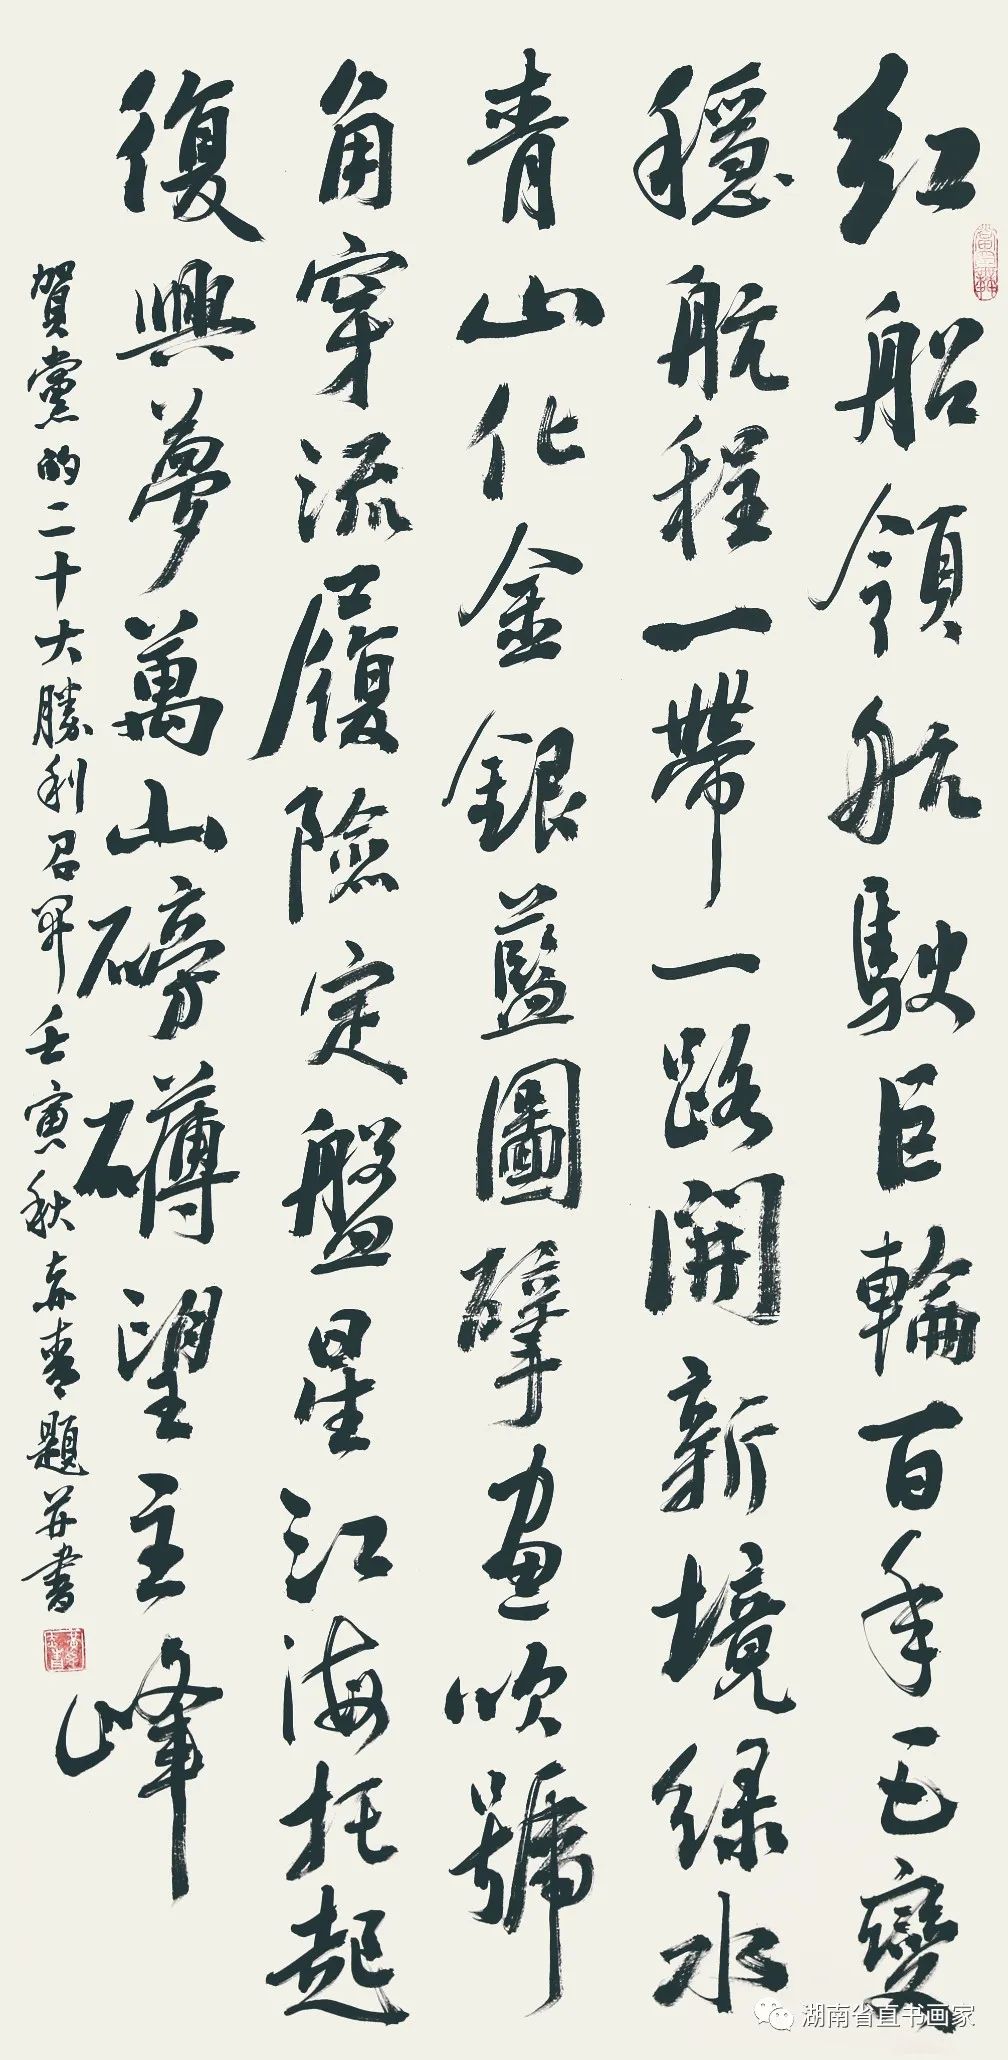 红船領航駛巨輪百年變
穩航程一帶一路開新境緑水
青山化金銀藍圖擘畫吹號
角穿流履險定盤星江海托起
復興夢萬山磅礴望主峰
賀黨的二十大勝利召開壬寅秋青題并書
湖南省直书画家